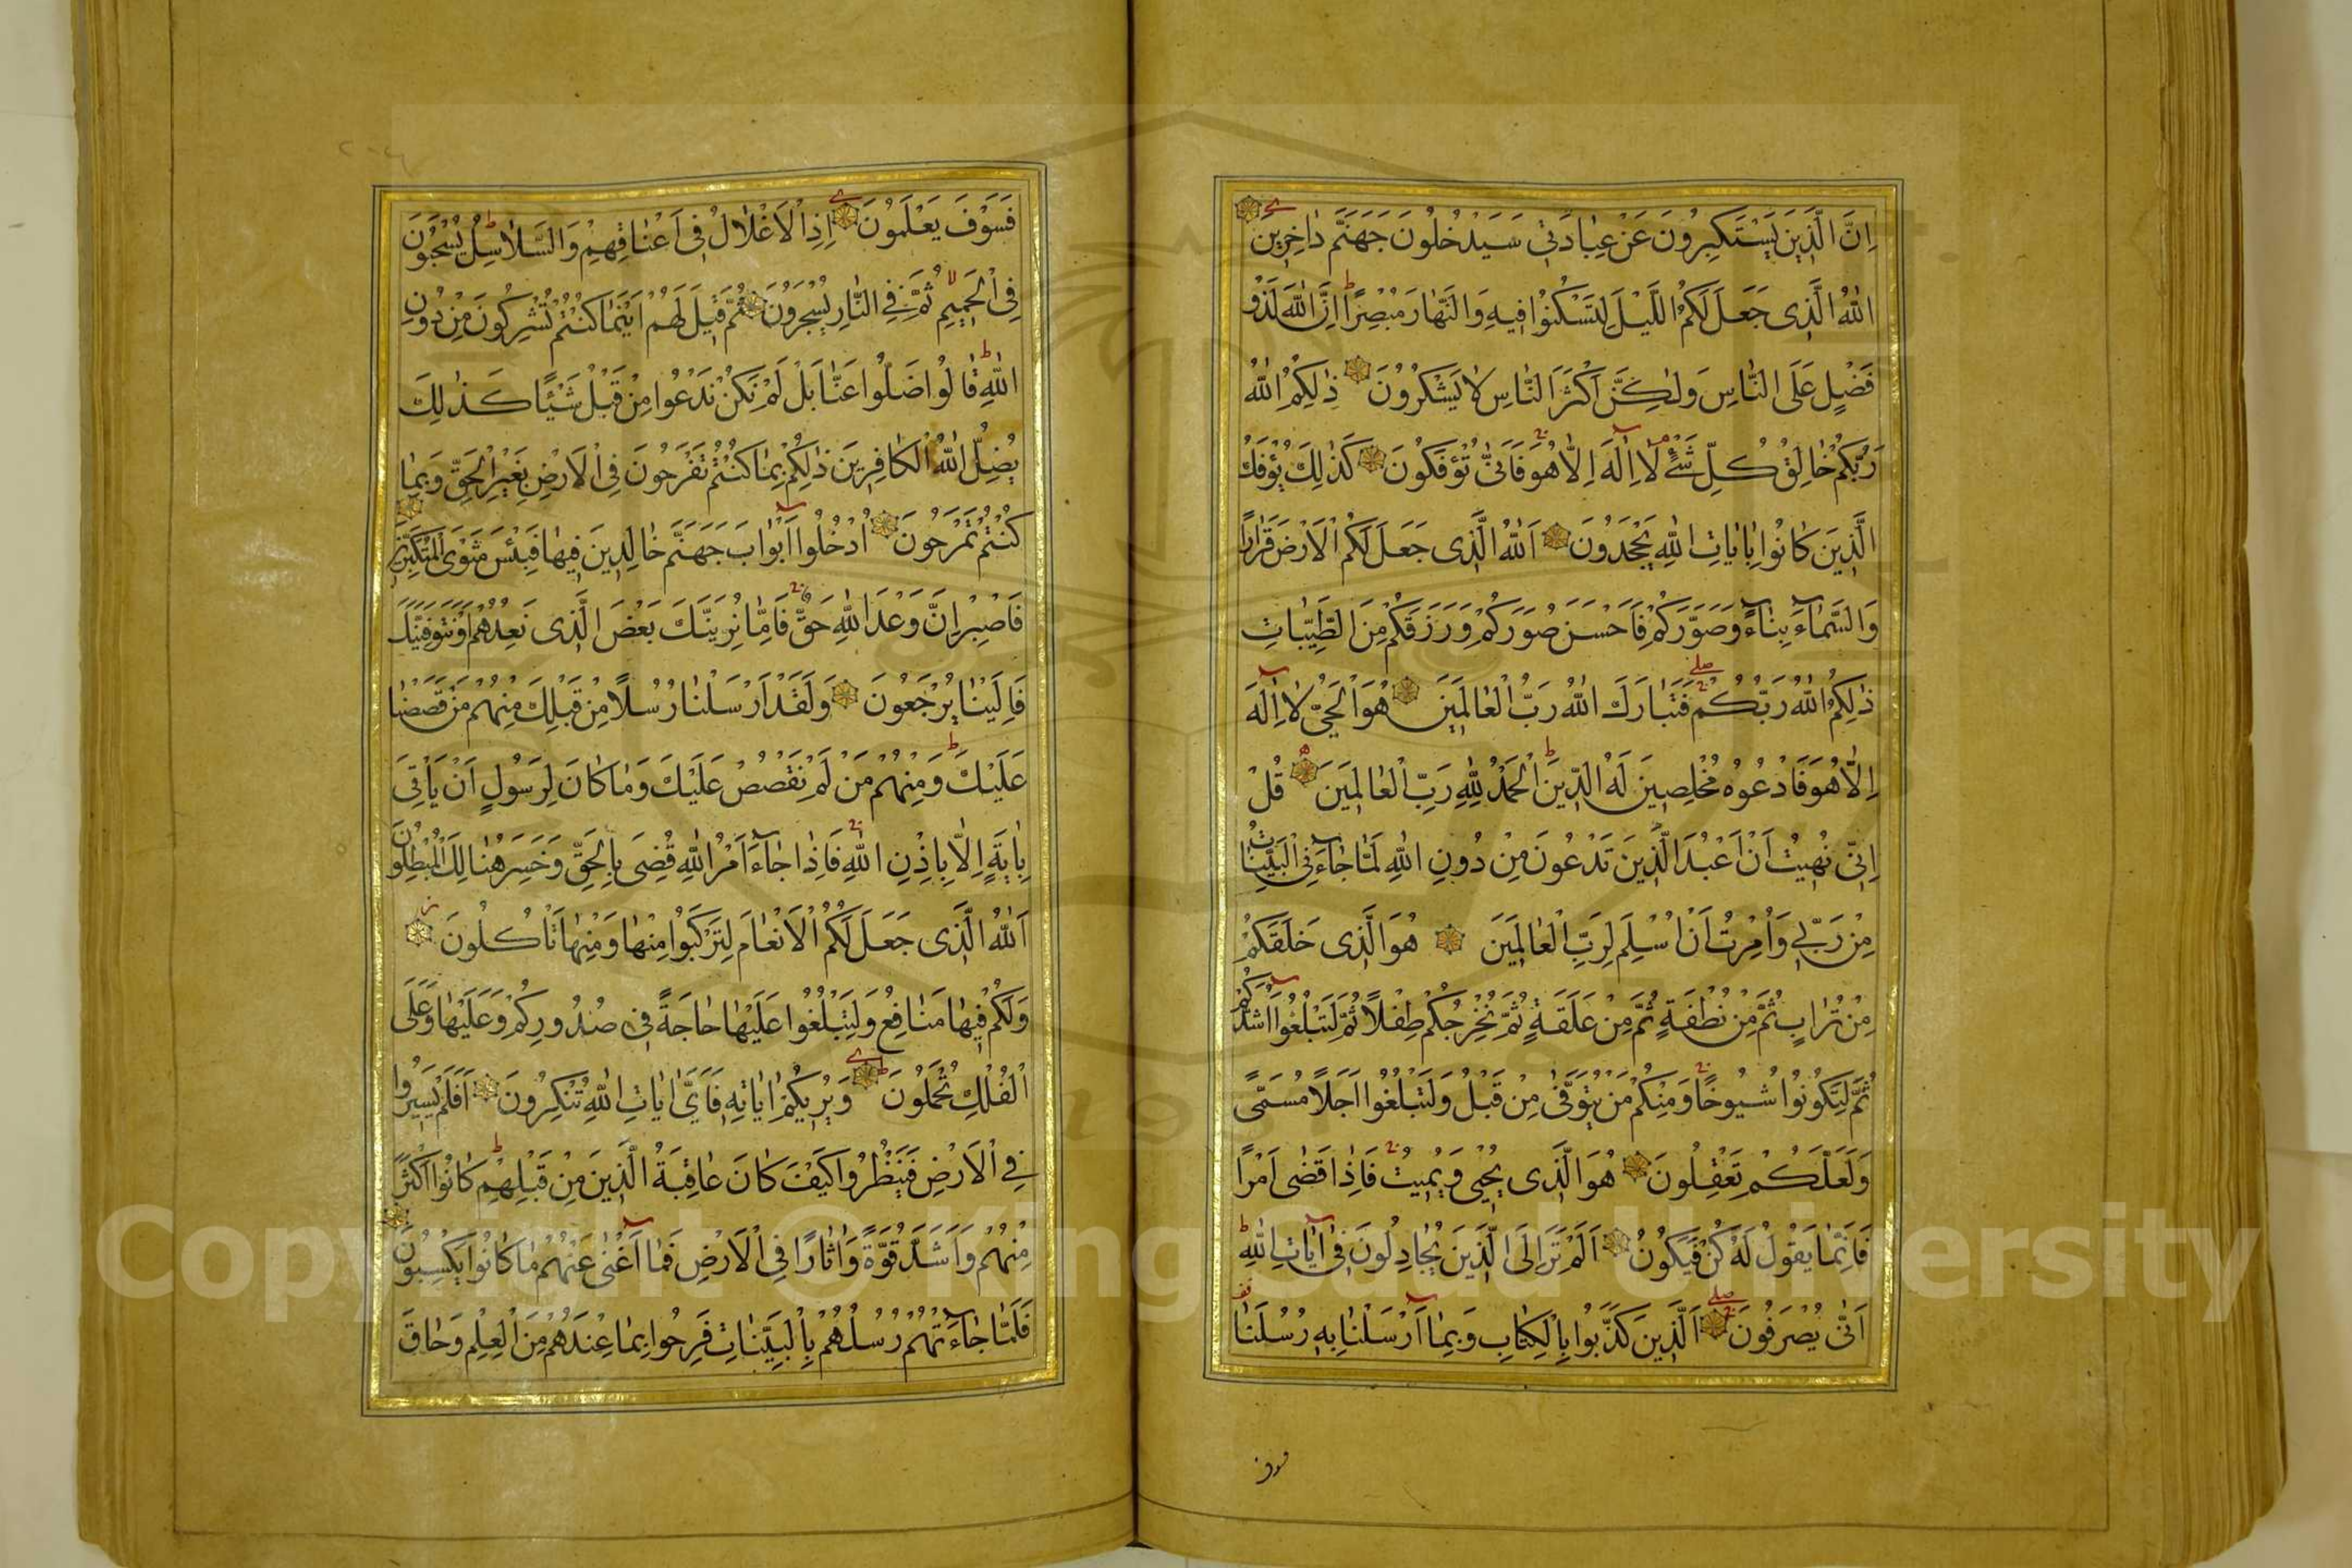 اِنَّ الَّذِينَ يَسْتَكْبِرُونَ عَنْ عِبَادَتِي سَيَدْخُلُونَ جَهَنَّمَ دَاخِرِينَ
اَللّٰهُ الَّذِى جَعَلَ لَكُمُ اللَّيْلَ لِتَسْكُنُوا فِيهِ وَالنَّهَارَ مُبْصِرًا اِنَّ اللّٰهَ لَذُو
فَضْلٍ عَلَى النَّاسِ وَلٰكِنَّ اَكْثَرَ النَّاسِ لَا يَشْكُرُونَ ذٰلِكُمُ اللّٰهُ
رَبُّكُمْ خَالِقُ كُلِّ شَيْءٍ لَا اِلٰهَ اِلَّا هُوَ فَاَنّٰى تُؤْفَكُونَ كَذٰلِكَ يُؤْفَكُ
الَّذِينَ كَانُوا بِاٰيَاتِ اللّٰهِ يَجْحَدُونَ اَللّٰهُ الَّذِى جَعَلَ لَكُمُ الْاَرْضَ قَرَارًا
وَالسَّمَاءَ بِنَاءً وَصَوَّرَكُمْ فَاَحْسَنَ صُوَرَكُمْ وَرَزَقَكُمْ مِنَ الطَّيِّبَاتِ
ذٰلِكُمُ اللّٰهُ رَبُّكُمْ فَتَبَارَكَ اللّٰهُ رَبُّ الْعَالَمِينَ هُوَ الْحَيُّ لَا اِلٰهَ
اِلَّا هُوَ فَادْعُوهُ مُخْلِصِينَ لَهُ الدِّينَ اَلْحَمْدُ لِلّٰهِ رَبِّ الْعَالَمِينَ قُلْ
اِنِّى نُهِيتُ اَنْ اَعْبُدَ الَّذِينَ تَدْعُونَ مِنْ دُونِ اللّٰهِ لَمَّا جَاءَنِىَ الْبَيِّنَاتُ
مِنْ رَبِّى وَاُمِرْتُ اَنْ اُسْلِمَ لِرَبِّ الْعَالَمِينَ هُوَ الَّذِى خَلَقَكُمْ
مِنْ تُرَابٍ ثُمَّ مِنْ نُطْفَةٍ ثُمَّ مِنْ عَلَقَةٍ ثُمَّ يُخْرِجُكُمْ طِفْلًا ثُمَّ لِتَبْلُغُوا اَشُدَّكُمْ
ثُمَّ لِتَكُونُوا شُيُوخًا وَمِنْكُمْ مَنْ يُتَوَفّٰى مِنْ قَبْلُ وَلِتَبْلُغُوا اَجَلًا مُسَمًّى
وَلَعَلَّكُمْ تَعْقِلُونَ هُوَ الَّذِى يُحْيِى وَيُمِيتُ فَاِذَا قَضٰى اَمْرًا
فَاِنَّمَا يَقُولُ لَهُ كُنْ فَيَكُونُ اَلَمْ تَرَ اِلَى الَّذِينَ يُجَادِلُونَ فِى اٰيَاتِ اللّٰهِ
اَنّٰى يُصْرَفُونَ اَلَّذِينَ كَذَّبُوا بِالْكِتَابِ وَبِمَا اَرْسَلْنَا بِهِ رُسُلَنَا
فسوف
فَسَوْفَ يَعْلَمُونَ اِذِ الْاَغْلَالُ فِى اَعْنَاقِهِمْ وَالسَّلَاسِلُ يُسْحَبُونَ
فِى الْحَمِيمِ ثُمَّ فِى النَّارِ يُسْجَرُونَ ثُمَّ قِيلَ لَهُمْ اَيْنَمَا كُنْتُمْ تُشْرِكُونَ مِنْ دُونِ
اللّٰهِ قَالُوا ضَلُّوا عَنَّا بَلْ لَمْ نَكُنْ نَدْعُوا مِنْ قَبْلُ شَيْئًا كَذٰلِكَ
يُضِلُّ اللّٰهُ الْكَافِرِينَ ذٰلِكُمْ بِمَا كُنْتُمْ تَفْرَحُونَ فِى الْاَرْضِ بِغَيْرِ الْحَقِّ وَبِمَا
كُنْتُمْ تَمْرَحُونَ اُدْخُلُوا اَبْوَابَ جَهَنَّمَ خَالِدِينَ فِيهَا فَبِئْسَ مَثْوَى الْمُتَكَبِّرِينَ
فَاصْبِرْ اِنَّ وَعْدَ اللّٰهِ حَقٌّ فَاِمَّا نُرِيَنَّكَ بَعْضَ الَّذِى نَعِدُهُمْ اَوْ نَتَوَفَّيَنَّكَ
فَاِلَيْنَا يُرْجَعُونَ وَلَقَدْ اَرْسَلْنَا رُسُلًا مِنْ قَبْلِكَ مِنْهُمْ مَنْ قَصَصْنَا
عَلَيْكَ وَمِنْهُمْ مَنْ لَمْ نَقْصُصْ عَلَيْكَ وَمَا كَانَ لِرَسُولٍ اَنْ يَأْتِىَ
بِاٰيَةٍ اِلَّا بِاِذْنِ اللّٰهِ فَاِذَا جَاءَ اَمْرُ اللّٰهِ قُضِىَ بِالْحَقِّ وَخَسِرَ هُنَالِكَ الْمُبْطِلُونَ
اَللّٰهُ الَّذِى جَعَلَ لَكُمُ الْاَنْعَامَ لِتَرْكَبُوا مِنْهَا وَمِنْهَا تَأْكُلُونَ
وَلَكُمْ فِيهَا مَنَافِعُ وَلِتَبْلُغُوا عَلَيْهَا حَاجَةً فِى صُدُورِكُمْ وَعَلَيْهَا وَعَلَى
الْفُلْكِ تُحْمَلُونَ وَيُرِيكُمْ اٰيَاتِهِ فَاَىَّ اٰيَاتِ اللّٰهِ تُنْكِرُونَ اَفَلَمْ يَسِيرُوا
فِى الْاَرْضِ فَيَنْظُرُوا كَيْفَ كَانَ عَاقِبَةُ الَّذِينَ مِنْ قَبْلِهِمْ كَانُوا اَكْثَرَ
مِنْهُمْ وَاَشَدَّ قُوَّةً وَاٰثَارًا فِى الْاَرْضِ فَمَا اَغْنٰى عَنْهُمْ مَا كَانُوا يَكْسِبُونَ
فَلَمَّا جَاءَتْهُمْ رُسُلُهُمْ بِالْبَيِّنَاتِ فَرِحُوا بِمَا عِنْدَهُمْ مِنَ الْعِلْمِ وَحَاقَ
Copyright © King Saud University